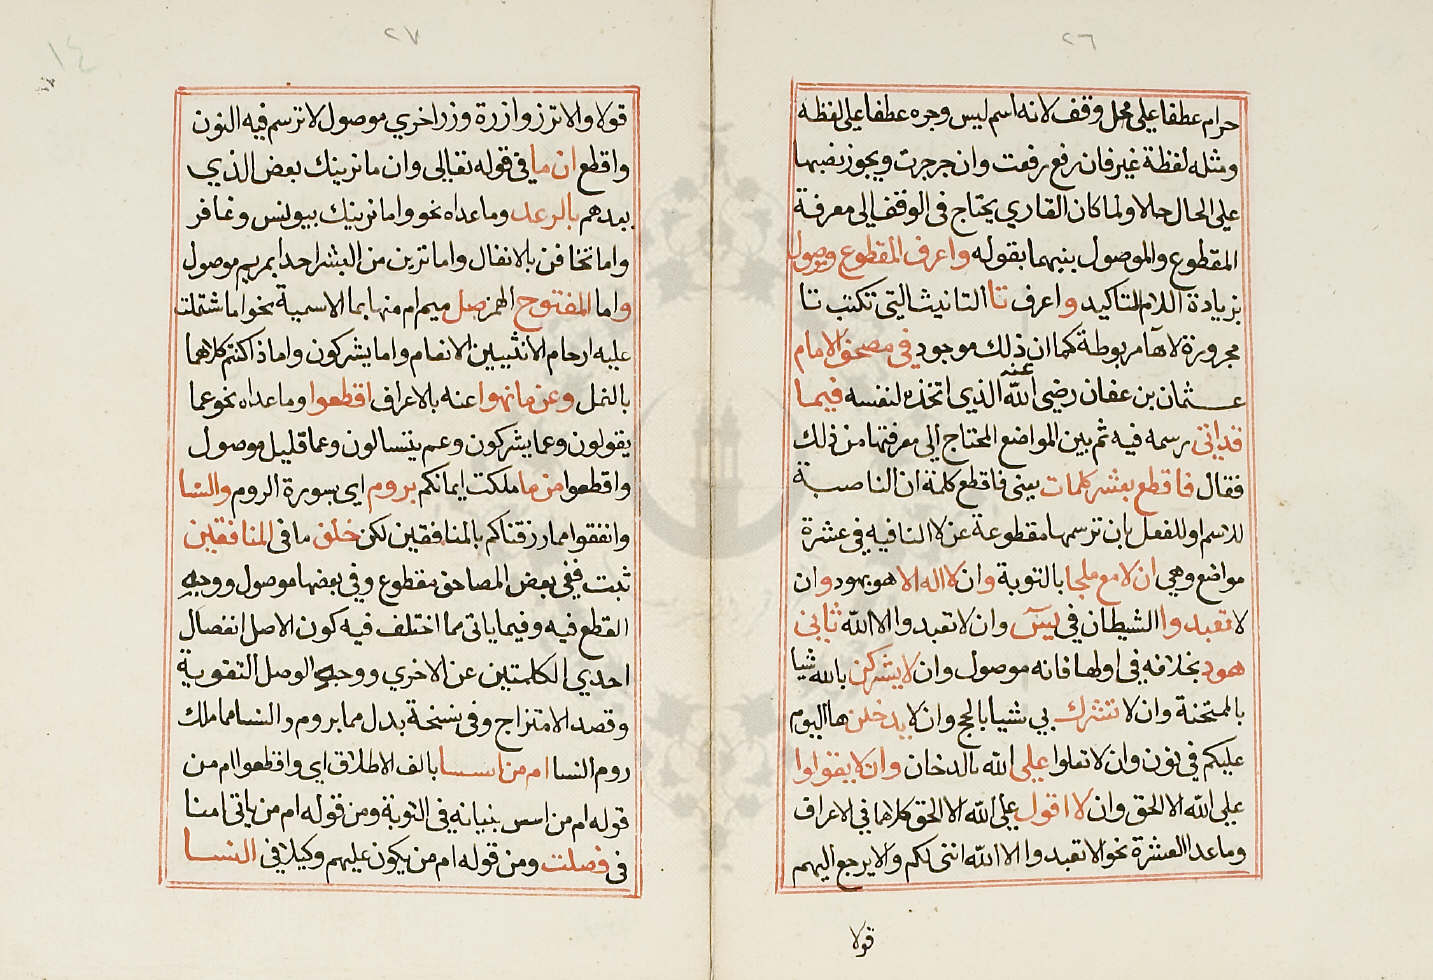 ٢٦
حرام عطفا على محل وقف لانه اسم ليس وجره عطفا على لفظه
ومثله لفظة غير فان رفع رفعت وان جر جرت ويجوز نصبها
على الحال حلا ولما كان القاري يحتاج في الوقف الى معرفة
المقطوع والموصول بينهما بقوله واعرف المقطوع وموصول
بزيادة اللام للتاكيد واعرف تا التانيث التي تكتب تا
مجرورة لا هآ مربوطة كما ان ذلك موجود في مصحف الامام
عثمان بن عفان رضي الله عنه الذي اتخذه لنفسه فيما
قد اتى رسمه فيه ثم بين المواضع المحتاج الى معرفتها من ذلك
فقال فاقطع بعشر كلمات يعني فاقطع كلمة ان الناصبة
للاسم او للفعل بان ترسمها مقطوعة عن لا النافيه في عشرة
مواضع وهي ان لا مع ملجا بالتوبة وان لا اله الا هو بهود وان
لا تعبدوا الشيطان في يسٓ وان لا تعبدوا الا الله ثاني
هود بخلافه في اولها فانه موصول وان لا يشركن بالله شيا
بالممتحنة وان لا تشرك بي شيا بالحج وان لا يدخلن ها اليوم
عليكم في نون وان لا تعلوا على الله بالدخان وان لا يقولوا
على الله الا الحق وان لا اقول على الله الا الحق كلاهما في الاعراف
وما عدا العشرة نحو الا تعبدوا الا الله انني لكم والا يرجع اليهم
قولا
٢٧
١٤
قولا والا تزر وازرة وزر اخري موصول لا ترسم فيه النون
واقطع ان ما في قوله تعالى وان ما نرينك بعض الذي
بعدهم بالرعد وما عداه نحو واما نرينك بيونس وغافر
واما تخافن بالانفال واما ترين من البشر احدا بمريم موصول
واما المفتوح الهمز صل ميم ام منها بما الاسمية نحو اما شتملت
عليه ارحام الانثيين الانعام واما يشركون واما ذا كنتم كلاهما
بالنمل وعن ما نهوا عنه بالاعراف اقطعوا وما عداه نحو عما
يقولون وعما يشركون وعم يتسالون وعما قليل موصول
واقطعوا من ما ملكت ايمانكم بروم اي بسورة الروم والنسا
وانفقوا مما رزقناكم بالمنافقين لكن خلف ما في المنافقين
ثبت ففي بعض المصاحف مقطوع وفي بعضها موصول ووجه
القطع فيه وفيما ياتي مما اختلف فيه كون الاصل انفصال
احدي الكلمتين عن الاخري ووجه الوصل التقوية
وقصد الامتزاج وفي نسخة بدل مما بروم والنسا مما ملك
روم النسا ام من اسسا بالف الاطلاق اي واقطعوا ام من
قوله ام من اسس بنيانه في التوبة ومن قوله ام من ياتي امنا
في فصلت ومن قوله ام من يكون عليهم وكيلا في النسا